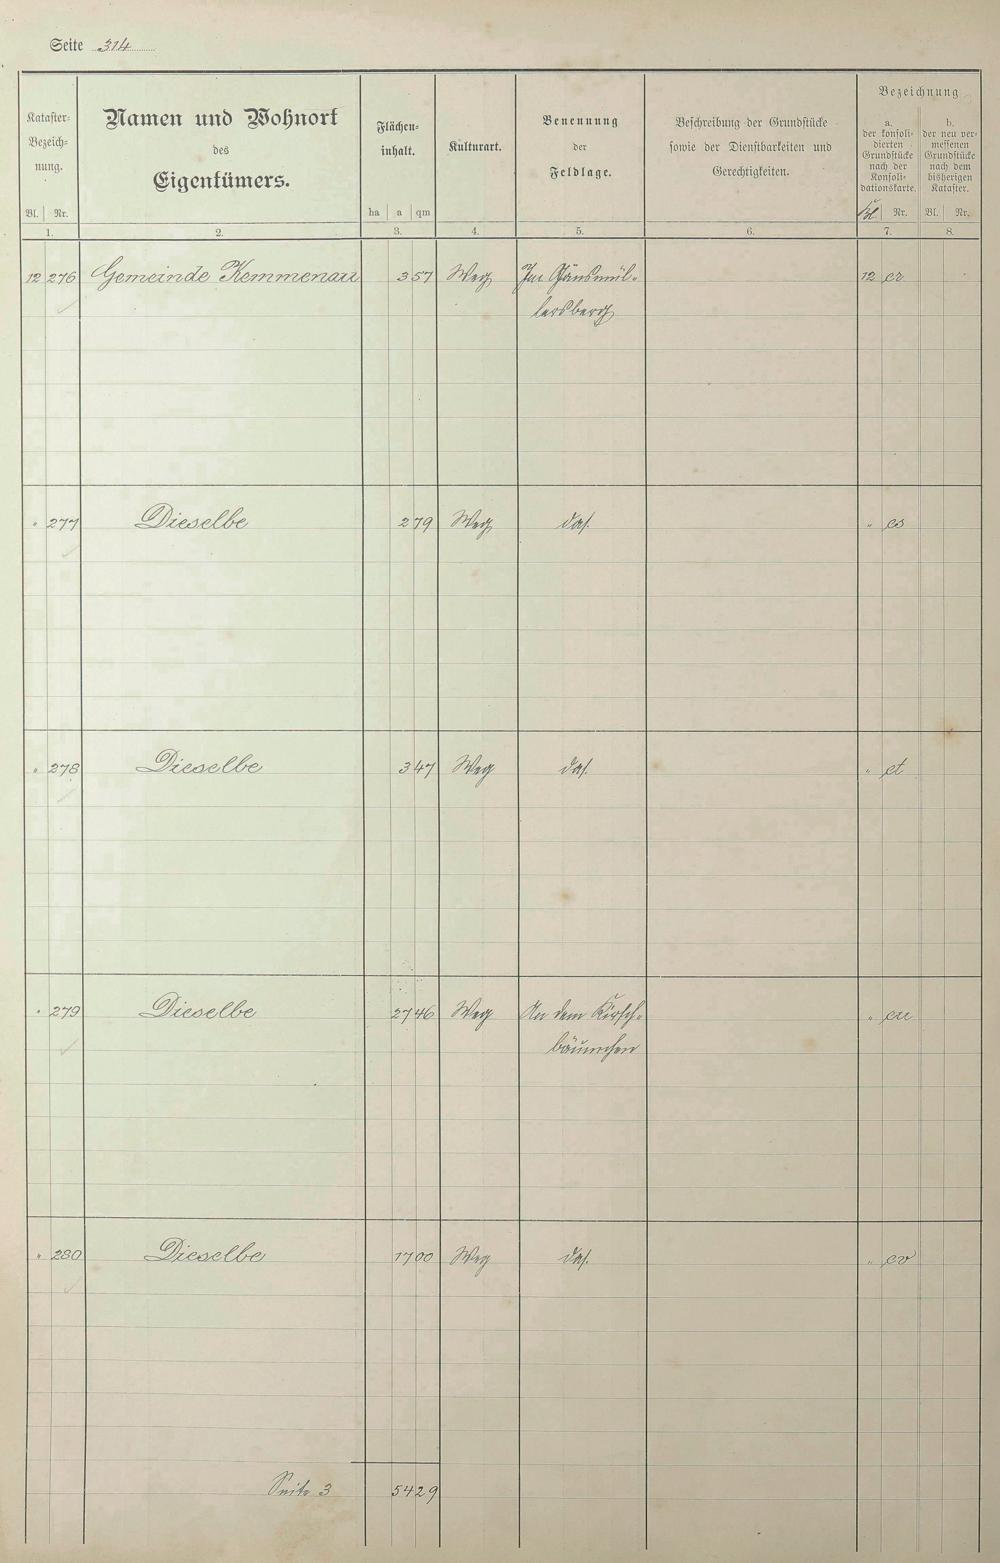 Seite 314
Kataster-
Bezeich-
nung.
Bl. Nr.
1.
Namen und Wohnort
des
Eigentümers.
2.
Flächen-
inhalt.
ha a qm
3.
Kulturart.
4.
Benennung
der
Feldlage.
5.
Beschreibung der Grundstücke
sowie der Dienstbarkeiten und
Gerechtigkeiten.
6.
Bezeichnung
a.
der konsoli-
dierten
Grundstücke
nach der
Konsoli-
dationskarte.
Bl Nr.
7.
b.
der neu ver-
messenen
Grundstücke
nach dem
bisherigen
Kataster.
Bl. Nr.
8.
12 276 Gemeinde Kemmenau 3 57 Weg Im Gänsmül- 12 er
lersberg
" 277 Dieselbe 2 79 Weg das. " es
" 278 Dieselbe 3 47 Weg das. " et
" 279 Dieselbe 27 46 Weg An dem Kirsch- " eu
bäumchen
" 280 Dieselbe 17 00 Weg das. " ev
Seite 3 54 29